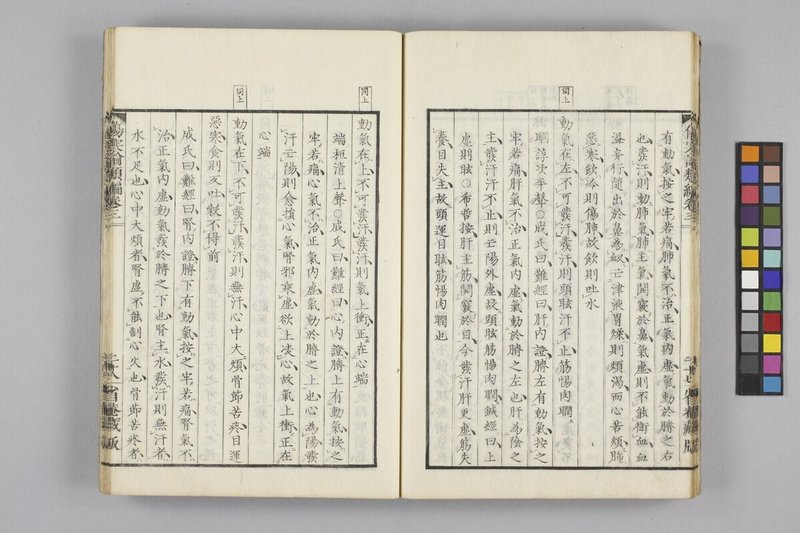 有動氣按之牢若痛肺氣不治正氣內虛氣動於臍之右
也發汗則動肺氣肺主氣開竅於鼻氣虛則不能衛血血
溢妄行隨出於鼻為衄亡津液胃燥則煩渴而心苦煩肺
惡寒飲冷則傷肺故飲則吐水
同上
動氣在左不可發汗發汗則頭眩汗不止筋惕肉瞤
瞤諄次平聲○成氏曰難經曰肝內證臍左有動氣按之
牢若痛肝氣不治正氣內虛氣動於臍之左也肝為陰之
主發汗汗不止則亡陽外虛故頭眩筋惕肉瞤鍼經曰上
虛則眩○希哲按肝主筋開竅於目今發汗肝更虛筋失
養目失主故頭運目眩筋惕肉瞤也
傷寒論類編卷三
二十七
省菴藏版
同上
動氣在上不可發汗發汗則氣上衝正在心端
端桓清上聲○成氏曰難經曰心內證臍上有動氣按之
牢若痛心氣不治正氣內虛氣動於臍之上也心為陽發
汗亡陽則愈損心氣腎邪乘虛欲上凌心故氣上衝正在
心端
同上
動氣在下不可發汗發汗則無汗心中大煩骨節苦疼目運
惡寒食則反吐穀不得前
成氏曰難經曰腎內證臍下有動氣按之牢若痛腎氣不
治正氣內虛動氣發於臍之下也腎主水發汗則無汗者
水不足也心中大煩者腎虛不能制心火也骨節苦疼者
傷寒論類編卷三
二十八
省菴藏版